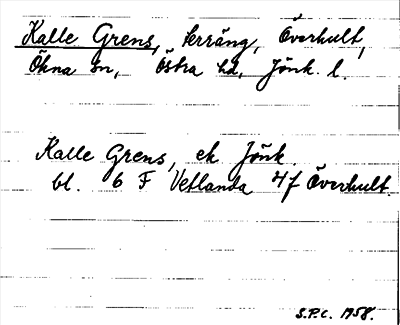 Kalle Grens, terräng, Överhult,
Ökna sn, Östra hd, Jönk. l.
Kalle Grens, ek Jönk.
bl. 6 F Vetlanda 4 f Överhult.
S.P.C. 1958.